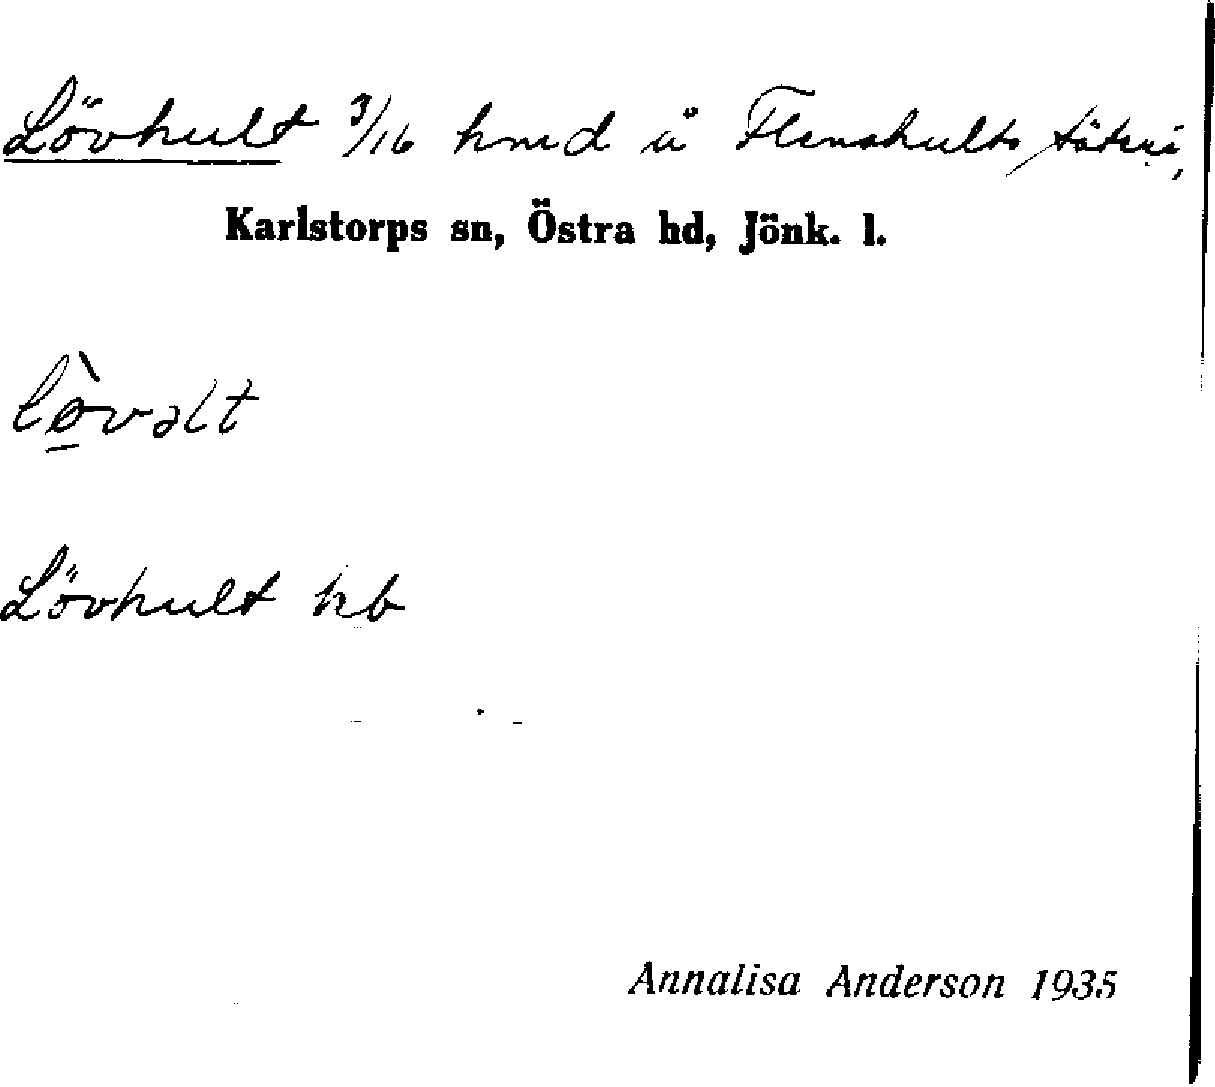 Lövhult 3/16 hmd å Flenshults säteri,
Karlstorps sn, Östra hd, Jönk. l.
lø̀vəlt
Lövhult kb
Annalisa Anderson 1935